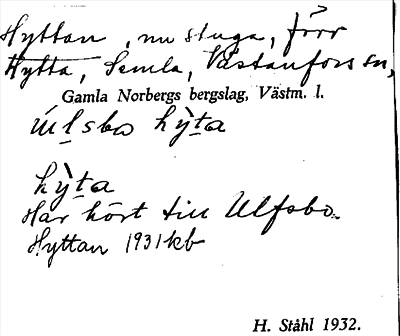 Hyttan, nu stuga, förr
Hytta, Semla, Västanfors sn,
Gamla Norbergs bergslag, Västm. l.
úlsbo hỳ̱ta
hỳ̱ta
Har hört till Ulfsbo.
Hyttan 1931 kb
H. Ståhl 1932.